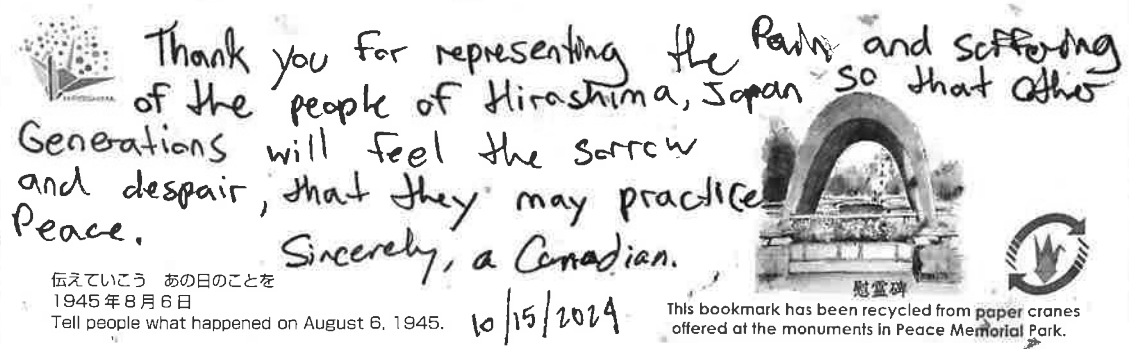 Thank you for representing the Pain and suffering
of the people of Hirashima, Japan so that other
Generations will feel the sorrow
and despair, that they may practice
Peace.
Sincerely, a Canadian.
伝えていこう あの日のことを
1945年8月6日
Tell people what happened on August 6, 1945.
10/15/2024
慰霊碑
This bookmark has been recycled from paper cranes
offered at the monuments in Peace Memorial Park.